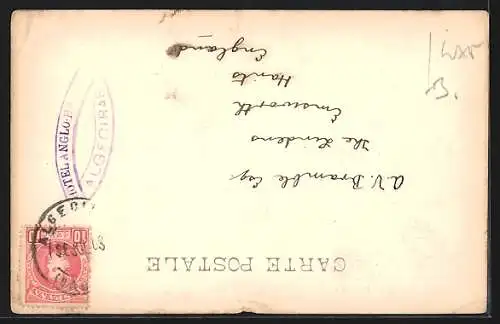 CARTE POSTALE
A.V. Bramble Esqr
The Lindens
Emsworth
Hants
England
HOTEL ANGLO-H
ALGECIRAS
ALGECI
10
10
B.